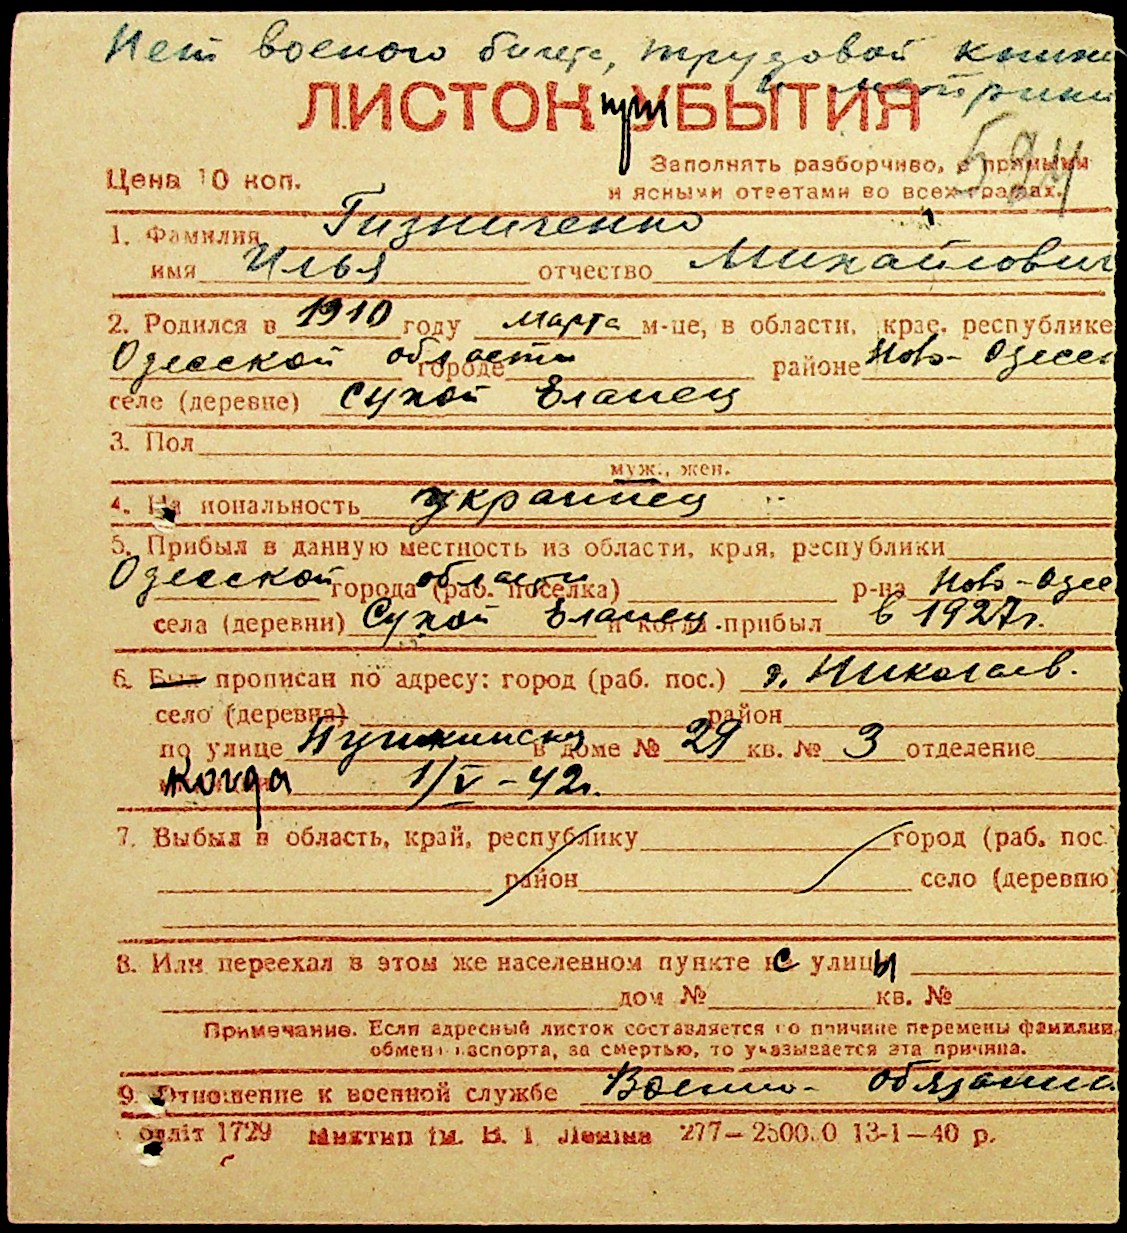 Нет военого билета, трудовой книжк
и метрики
ЛИСТОК при УБЫТИЯ
Цена 10 коп.
Заполнять разборчиво, с прямыми
и ясными ответами во всех графах.
1. Фамилия Гизниченко
имя Илья отчество Михайлович
2. Родился в 1910 году марта м-це, в области, крае, республике
Одесской области городе районе Ново-Одесс
селе (деревне) Сухой Еланец
3. Пол
муж., жен.
4. Национальность украинец
5. Прибыл в данную местность из области, края, республики
Одесской области города (раб. поселка) р-на Ново-Одес
села (деревни) Сухой Еланец и когда прибыл в 1927г.
6. Был прописан по адресу: город (раб. пос.) г. Николаев.
село (деревня) район
по улице Пушкинска в доме № 29 кв. № 3 отделение
когда 1/V-42г.
7. Выбыл в область, край, республику город (раб. пос.)
район село (деревню)
8. Или переехал в этом же населенном пункте с улицы
дом № кв. №
Примечание. Если адресный листок составляется по причине перемены фамилии,
обмена паспорта, за смертью, то указывается эта причина.
9. Отношение к военной службе Военно-обязанн
обліт 1729 Миктип ім. В. І. Леніна 277—250000 13-1—40 р.